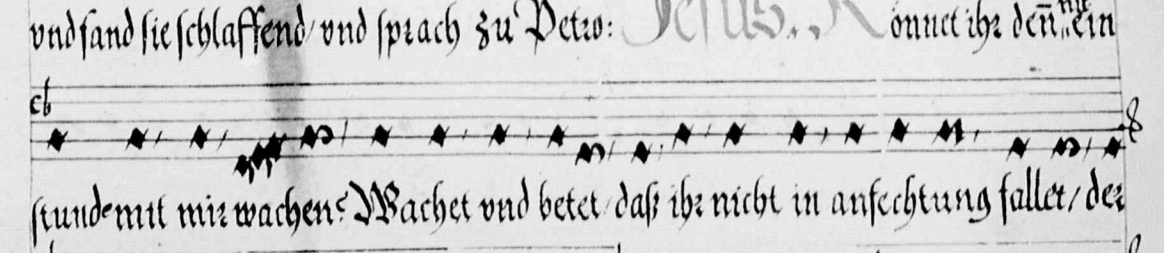 vnd fand sie schlaffend / vnd sprach zu Petro: Jesus. Könnet ihr deñ nit ein
stunde mit mir wachen? Wachet vnd betet / daß ihr nicht in anfechtung fallet / der